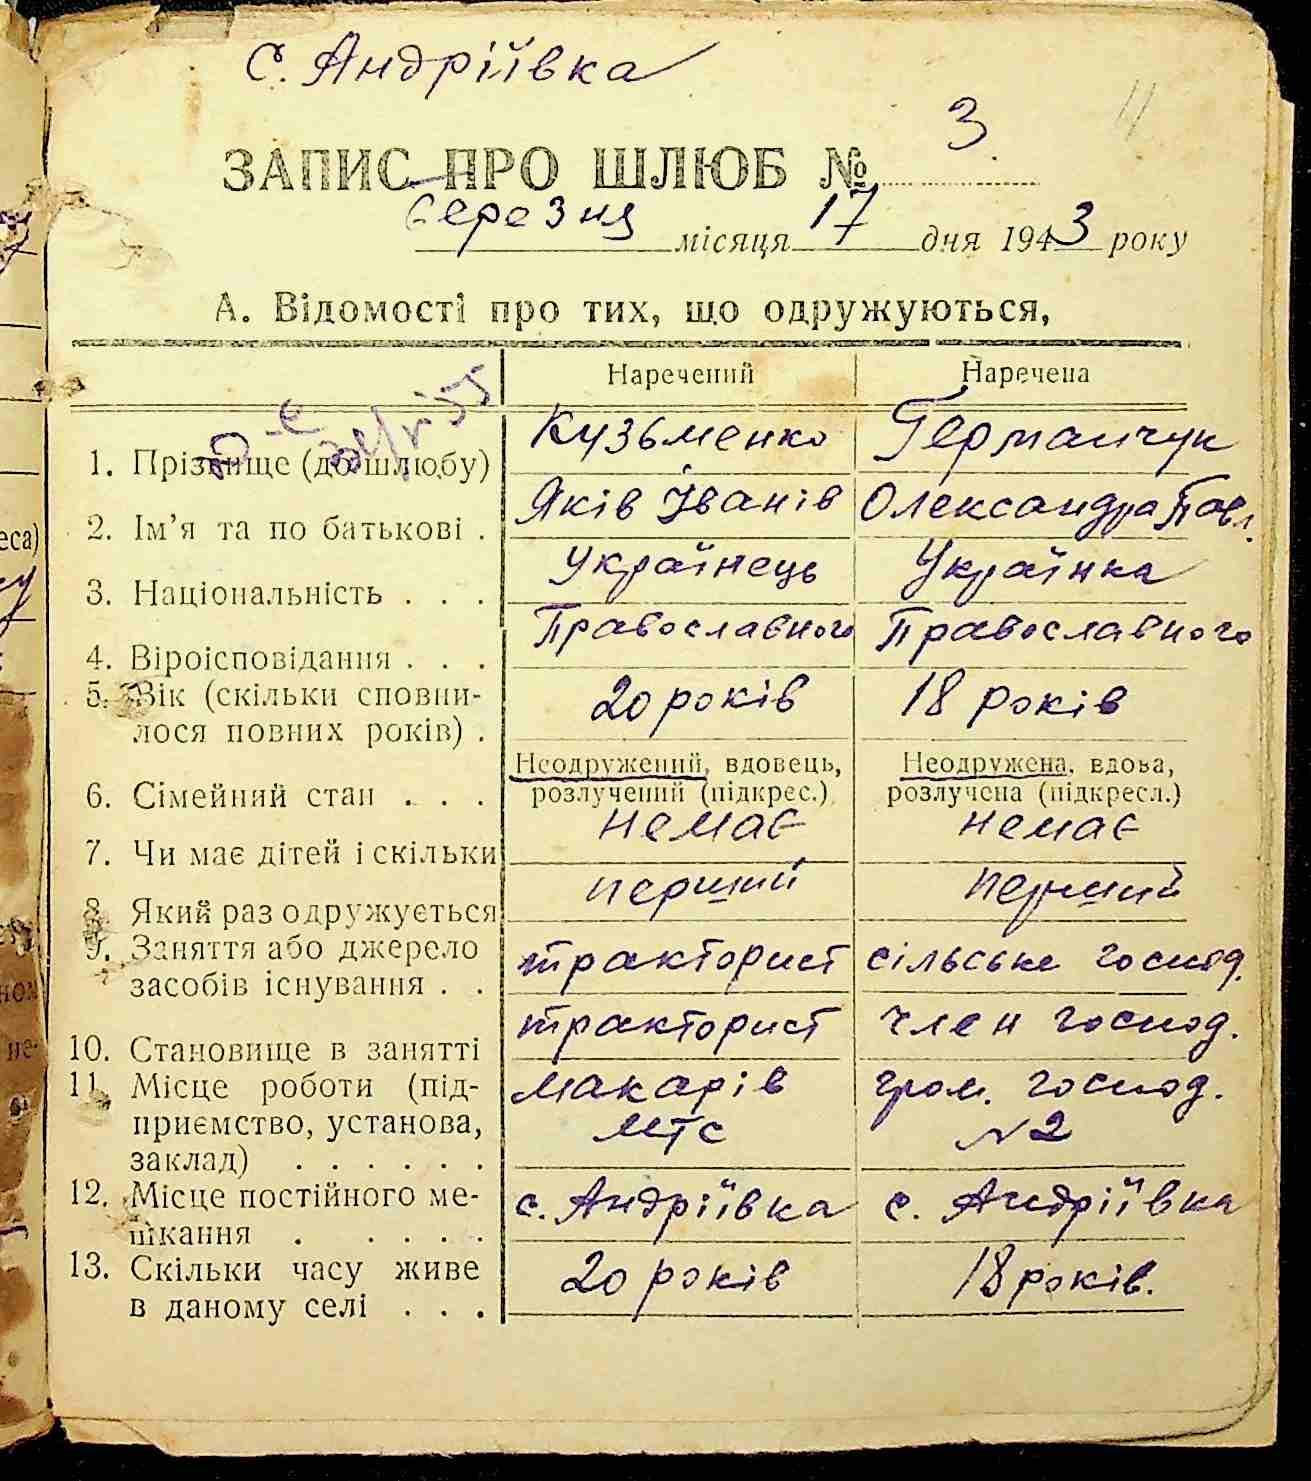 с. Андріївка
ЗАПИС ПРО ШЛЮБ № 3.
березня місяця 17 дня 1943 року
А. Відомості про тих, що одружуються,
Наречений Наречена
1. Прізвище (до шлюбу) Кузьменко Германчук
2. Ім’я та по батькові . Яків Іванів Олександра Павл.
3. Національність . . . Українець Українка
4. Віроісповідання . . . Православного Православного
5. Вік (скільки сповни-
лося повних років) . 20 років 18 років
6. Сімейний стан . . . Неодружений, вдовець, розлучений (підкрес.) Неодружена, вдова, розлучена (підкресл.)
7. Чи має дітей і скільки немає немає
8. Який раз одружується перший перший
9. Заняття або джерело
засобів існування . . тракторист сільське господ.
10. Становище в занятті тракторист член господ.
11. Місце роботи (під-
приємство, установа,
заклад) . . . . . . Макарів МТС гром. господ. №2
12. Місце постійного ме-
шкання . . . . . с. Андріївка с. Андріївка
13. Скільки часу живе
в даному селі . . . 20 років 18 років.